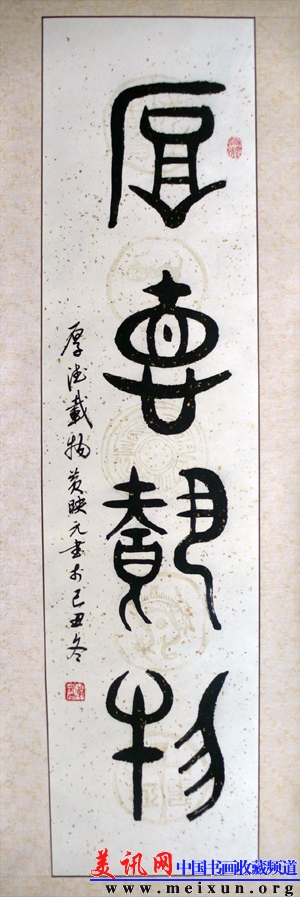 厚悳載物
厚德載物 黄映元书于己丑冬
美讯网 中国书画收藏频道
www.meixun.org